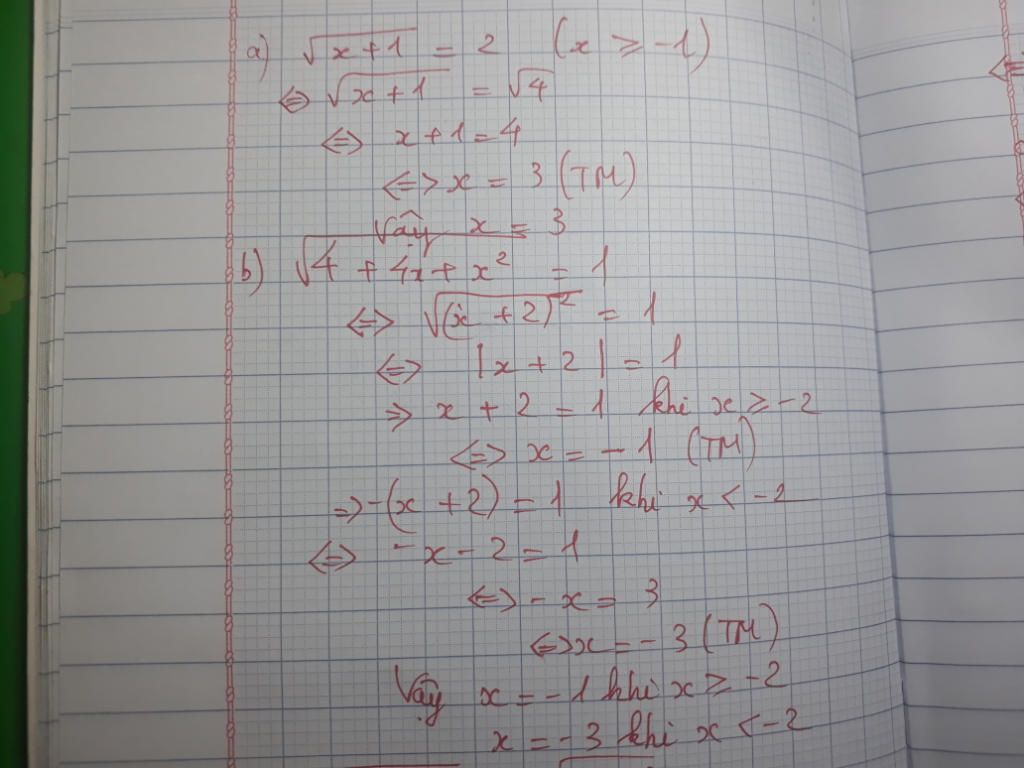 a) √(x+1) = 2 (x ≥ -1)
⇔ √(x+1) = √4
⇔ x+1 = 4
⇔ x = 3 (TM)
Vậy x = 3
b) √(4 + 4x + x²) = 1
⇔ √((x+2)²) = 1
⇔ |x+2| = 1
⇒ x + 2 = 1 khi x ≥ -2
⇔ x = -1 (TM)
⇒ -(x+2) = 1 khi x < -2
⇔ -x - 2 = 1
⇔ -x = 3
⇔ x = -3 (TM)
Vậy x = -1 khi x ≥ -2
x = -3 khi x < -2